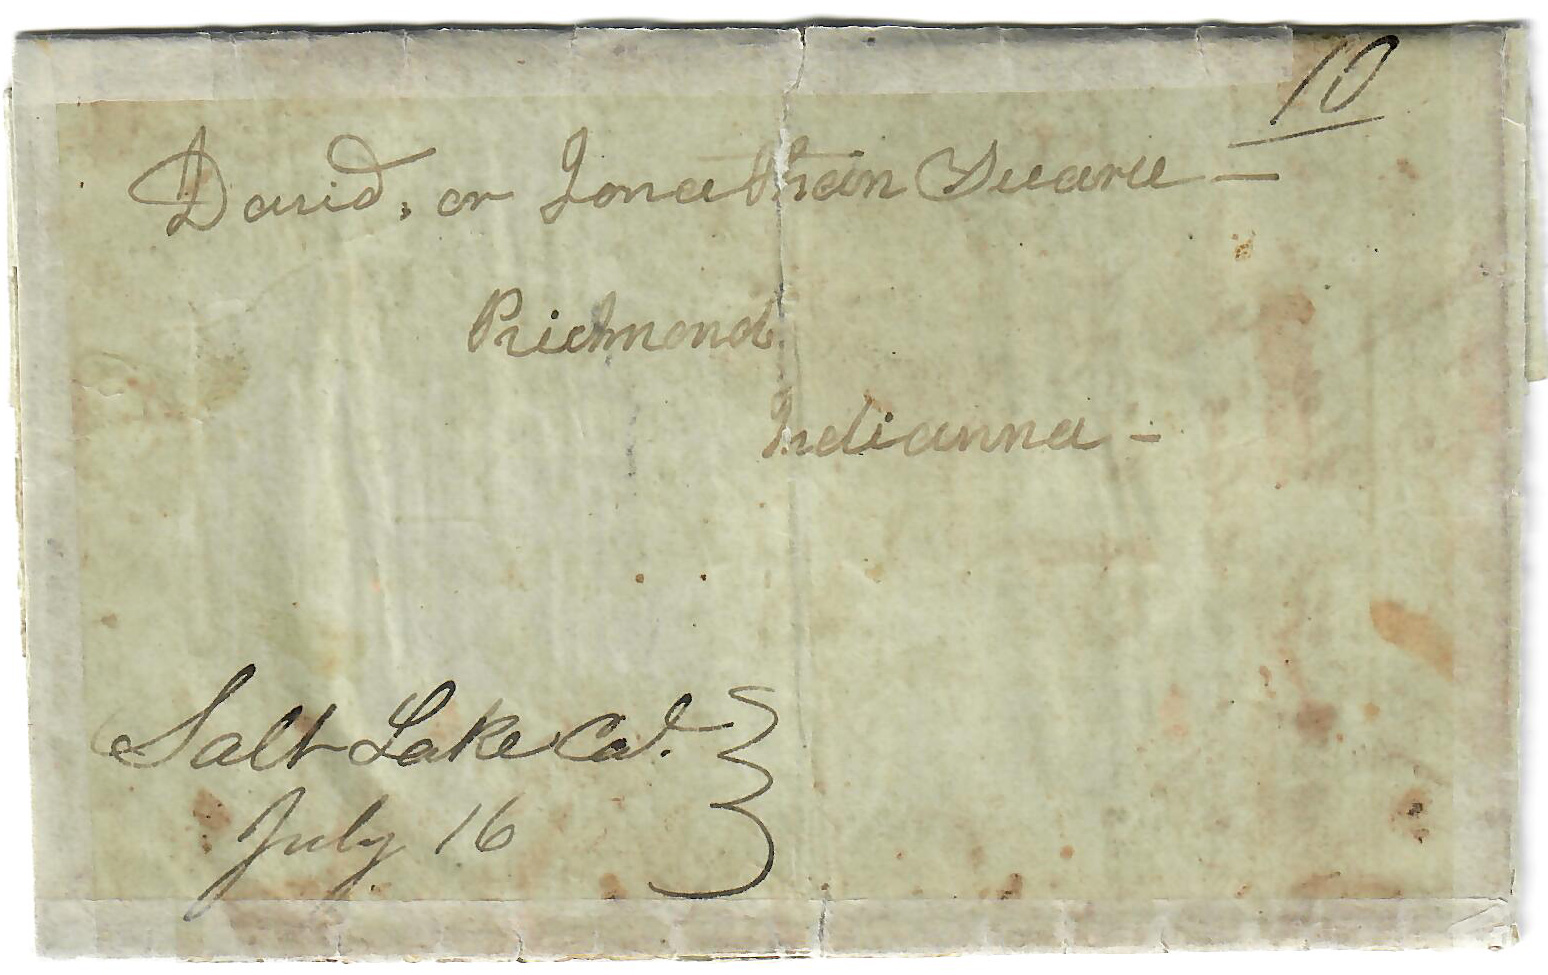 10
David, or Jonathan —
Richmond
Indianna —
Salt Lake Cal.
July 16